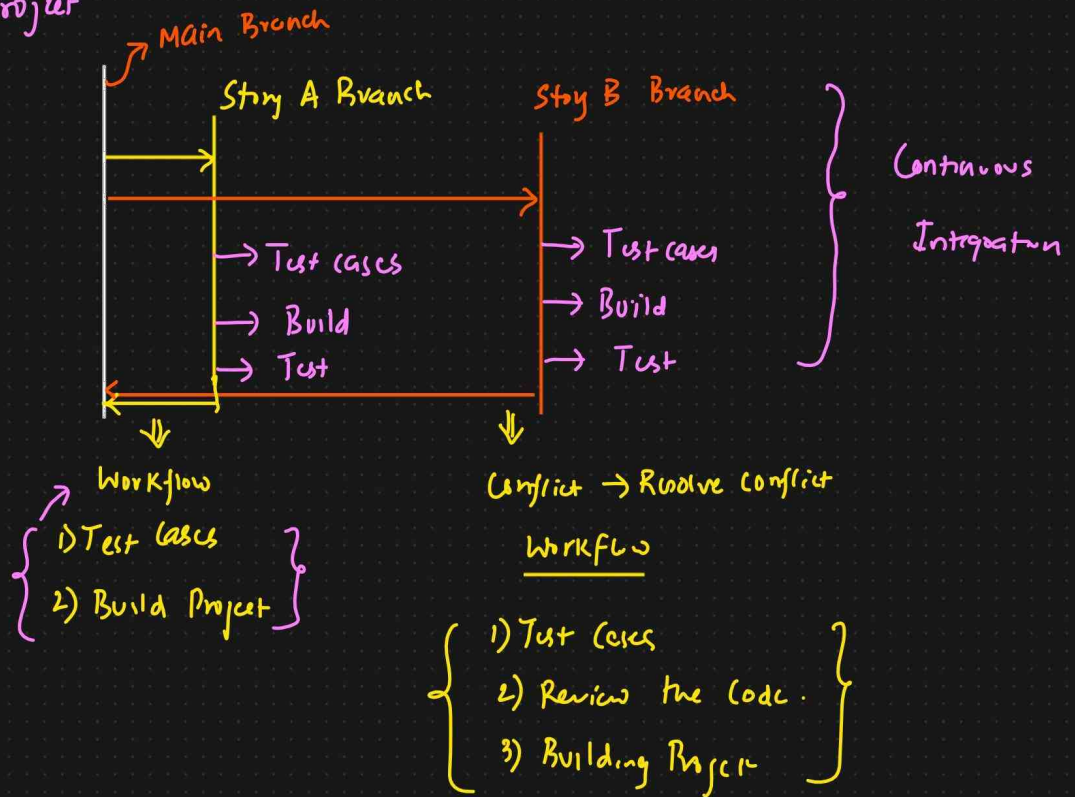 Project
Main Branch
Story A Branch
Stoy B Branch
Continuous
Integration
Test cases
Build
Test
Test cases
Build
Test
Workflow
1) Test Cases
2) Build Project
Conflict → Resolve conflict
Workflow
1) Test Cases
2) Review the Code.
3) Building Project